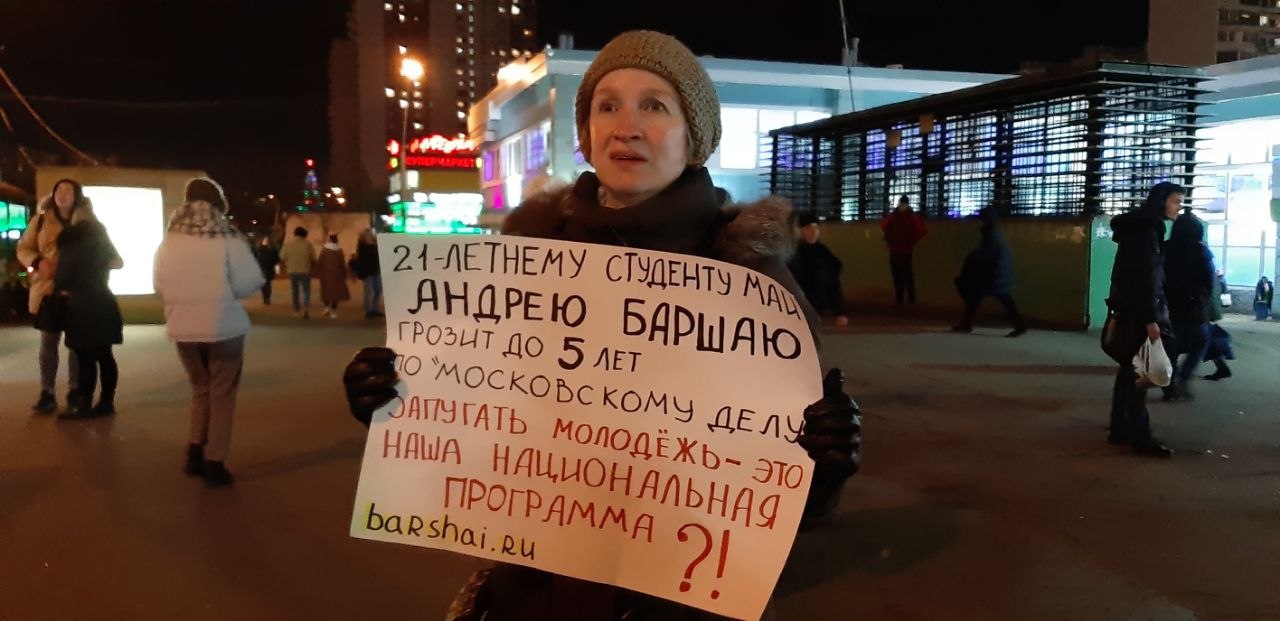 СУПЕРМАРКЕТ
21-ЛЕТНЕМУ СТУДЕНТУ МАИ
АНДРЕЮ БАРШАЮ
ГРОЗИТ ДО 5 ЛЕТ
ПО "МОСКОВСКОМУ ДЕЛУ
ЗАПУГАТЬ МОЛОДЁЖЬ - ЭТО
НАША НАЦИОНАЛЬНАЯ
ПРОГРАММА ?!
barshai.ru